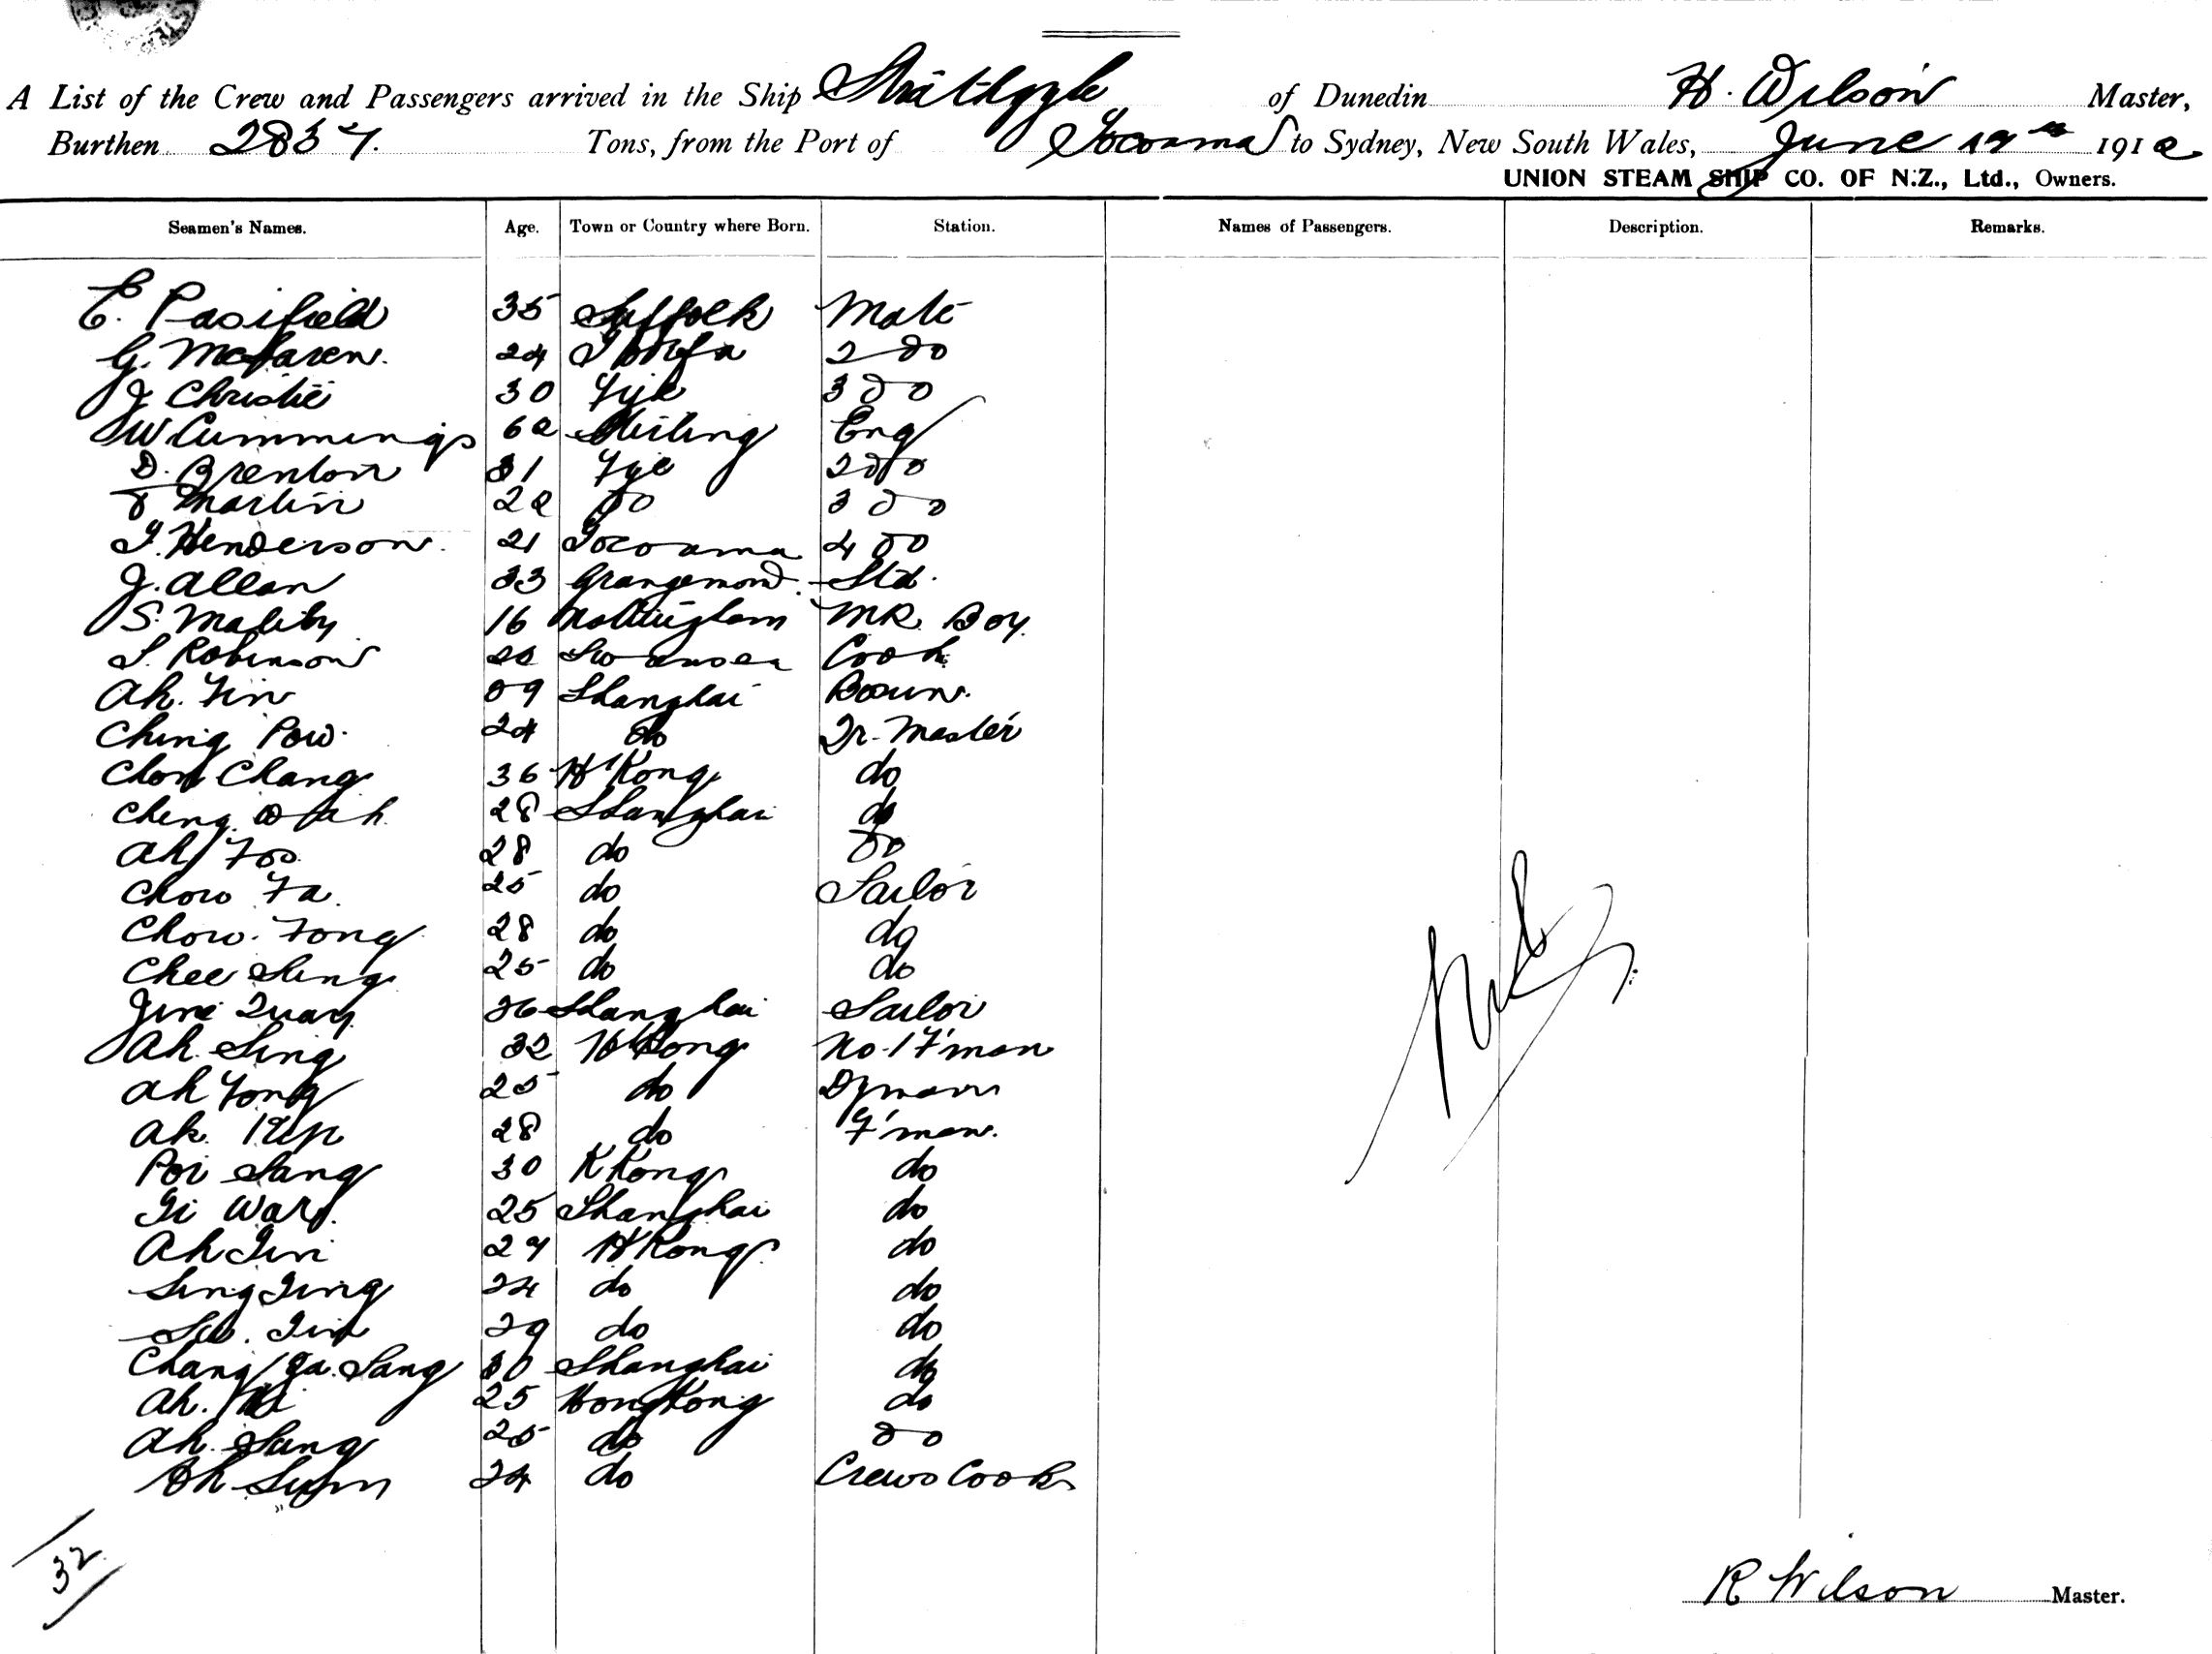 A List of the Crew and Passengers arrived in the Ship Strathgyle of Dunedin H. Wilson Master,
Burthen 2837. Tons, from the Port of Tocoama to Sydney, New South Wales, June 19th 1912
UNION STEAM SHIP CO. OF N.Z., Ltd., Owners.
Seamen's Names. Age. Town or Country where Born. Station. Names of Passengers. Description. Remarks.
E. Pasifield 35 Suffolk Mate
G. McLaren. 24 2 do
J Christie 30 Fife 3 do
W Cummings 62 Stirling Eng
D. Brenton 31 Fife 2 do
Martin 22 do 3 do
T. Henderson. 21 Tocoama 4 do
J. Allan 33 Grangemond. Std.
S. Maltby 16 Nottingham MR. Boy.
S. Robinson Swansea Cook
Ah. Fin Shanghai Bosun.
Ching Pow. 24 do Qr. Master
Chon Chang 36 H Kong do
Cheng 28 Shanghai do
Ah Foo 28 do do
Chow Fa. 25 do Sailor
Chow. Fong 28 do do
Chee Sung 25 do do
26 Shanghai Sailor
Ah. Sing 32 H Kong No. 1 F'man
Ah Yong 25 do
Ah. 28 do F'man.
Poi Sang 30 K Kong do
25 Shanghai do
Ah 29 H Kong do
Sing 24 do do
29 do do
Chang Ya. Sang 30 Shanghai do
Ah. 25 Hong Kong do
Ah. Sang 25 do do
Ah 24 do Crews Cook
Nil
32
R Wilson Master.